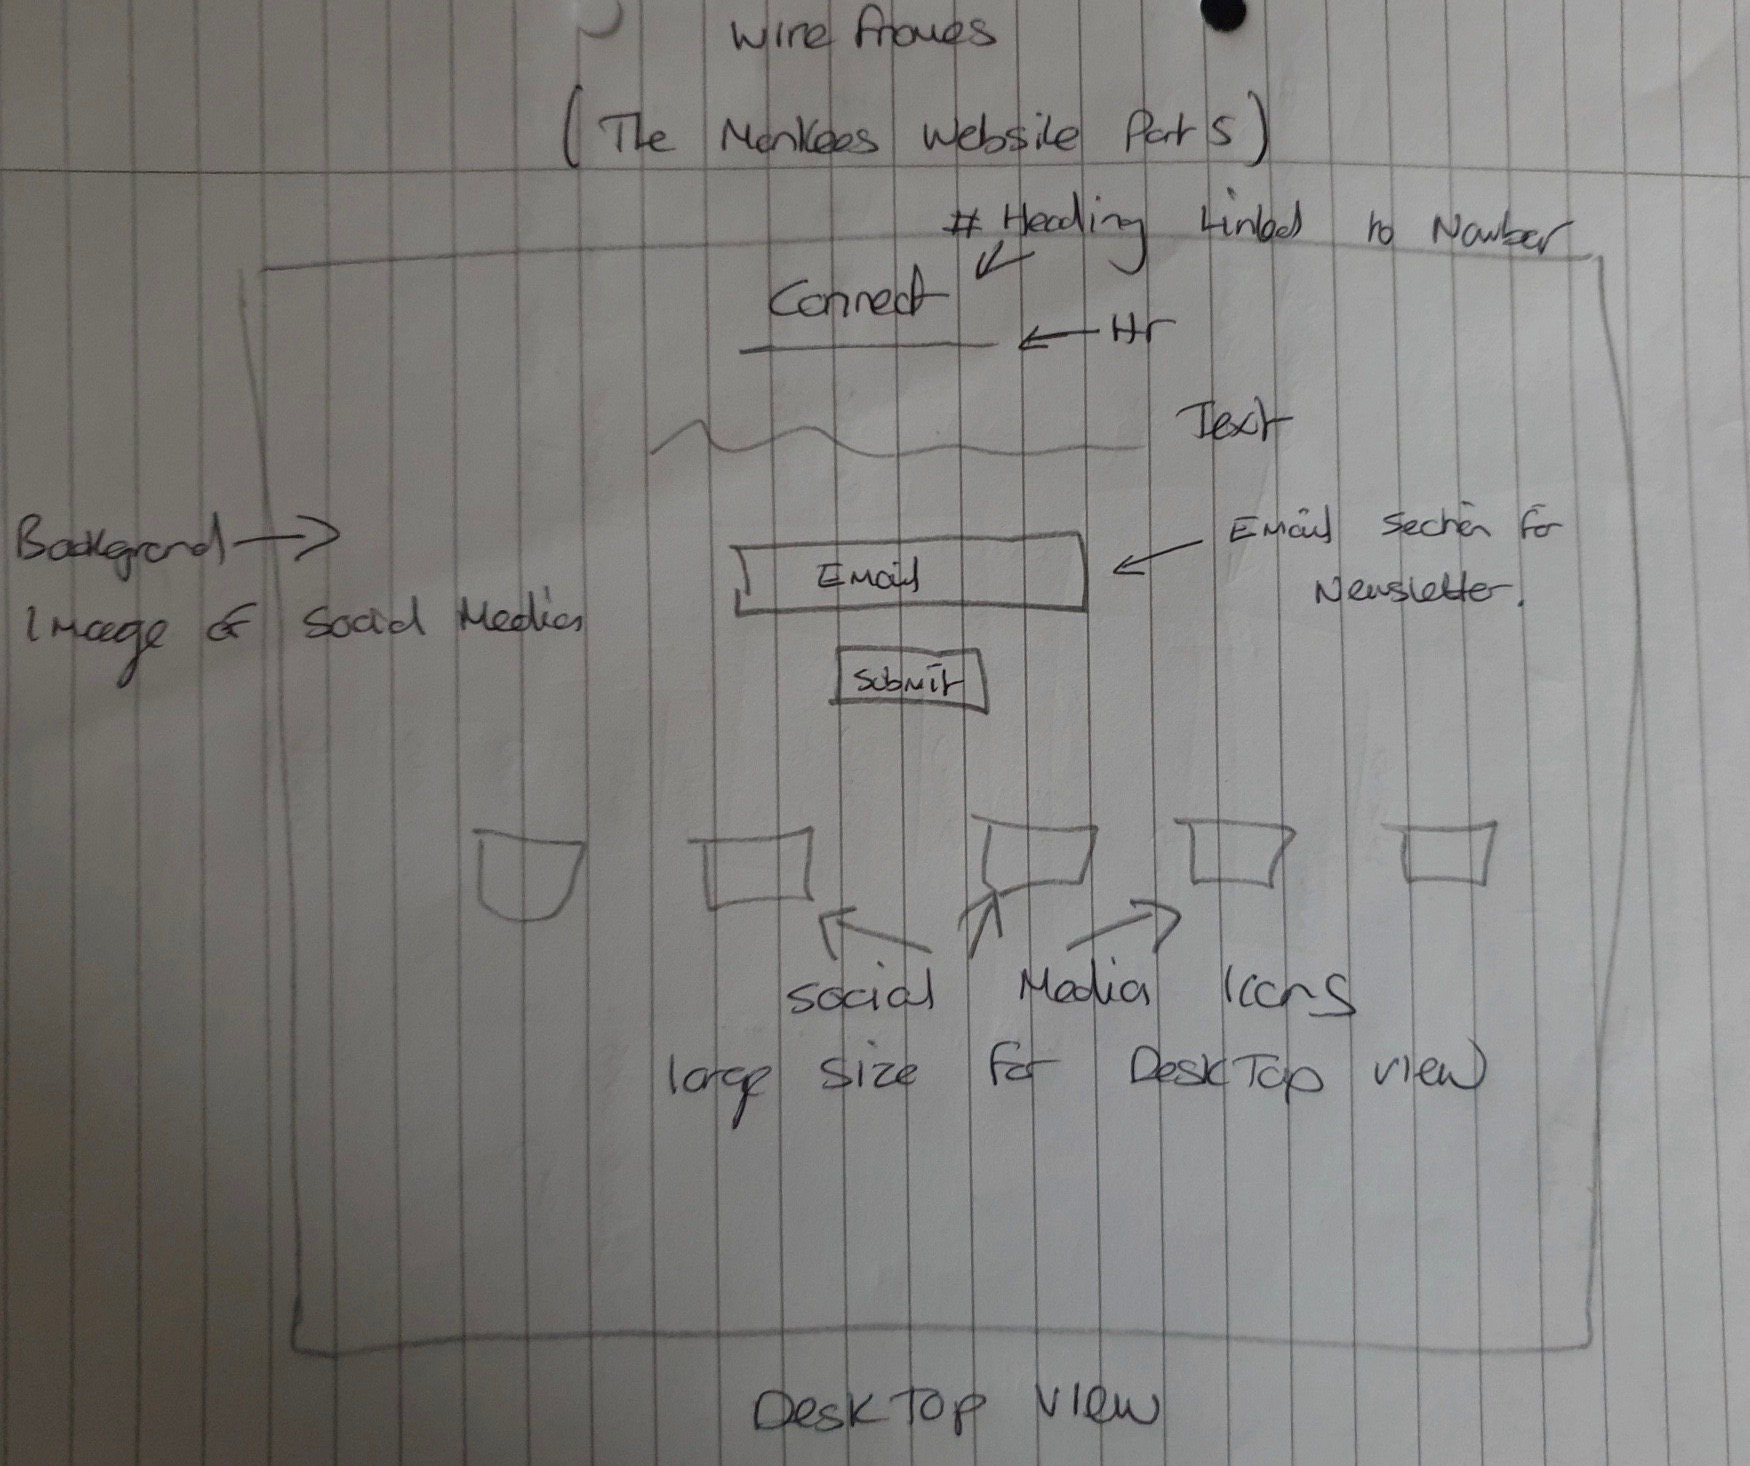 Wire frames
(The Monkees Website Part 5)
# Heading Linked to Navbar
Connect
Hr
Text
Background
Image of Social Media
Email
Email Section for
Newsletter.
Submit
Social Media Icons
large size for DeskTop view
DeskTop view